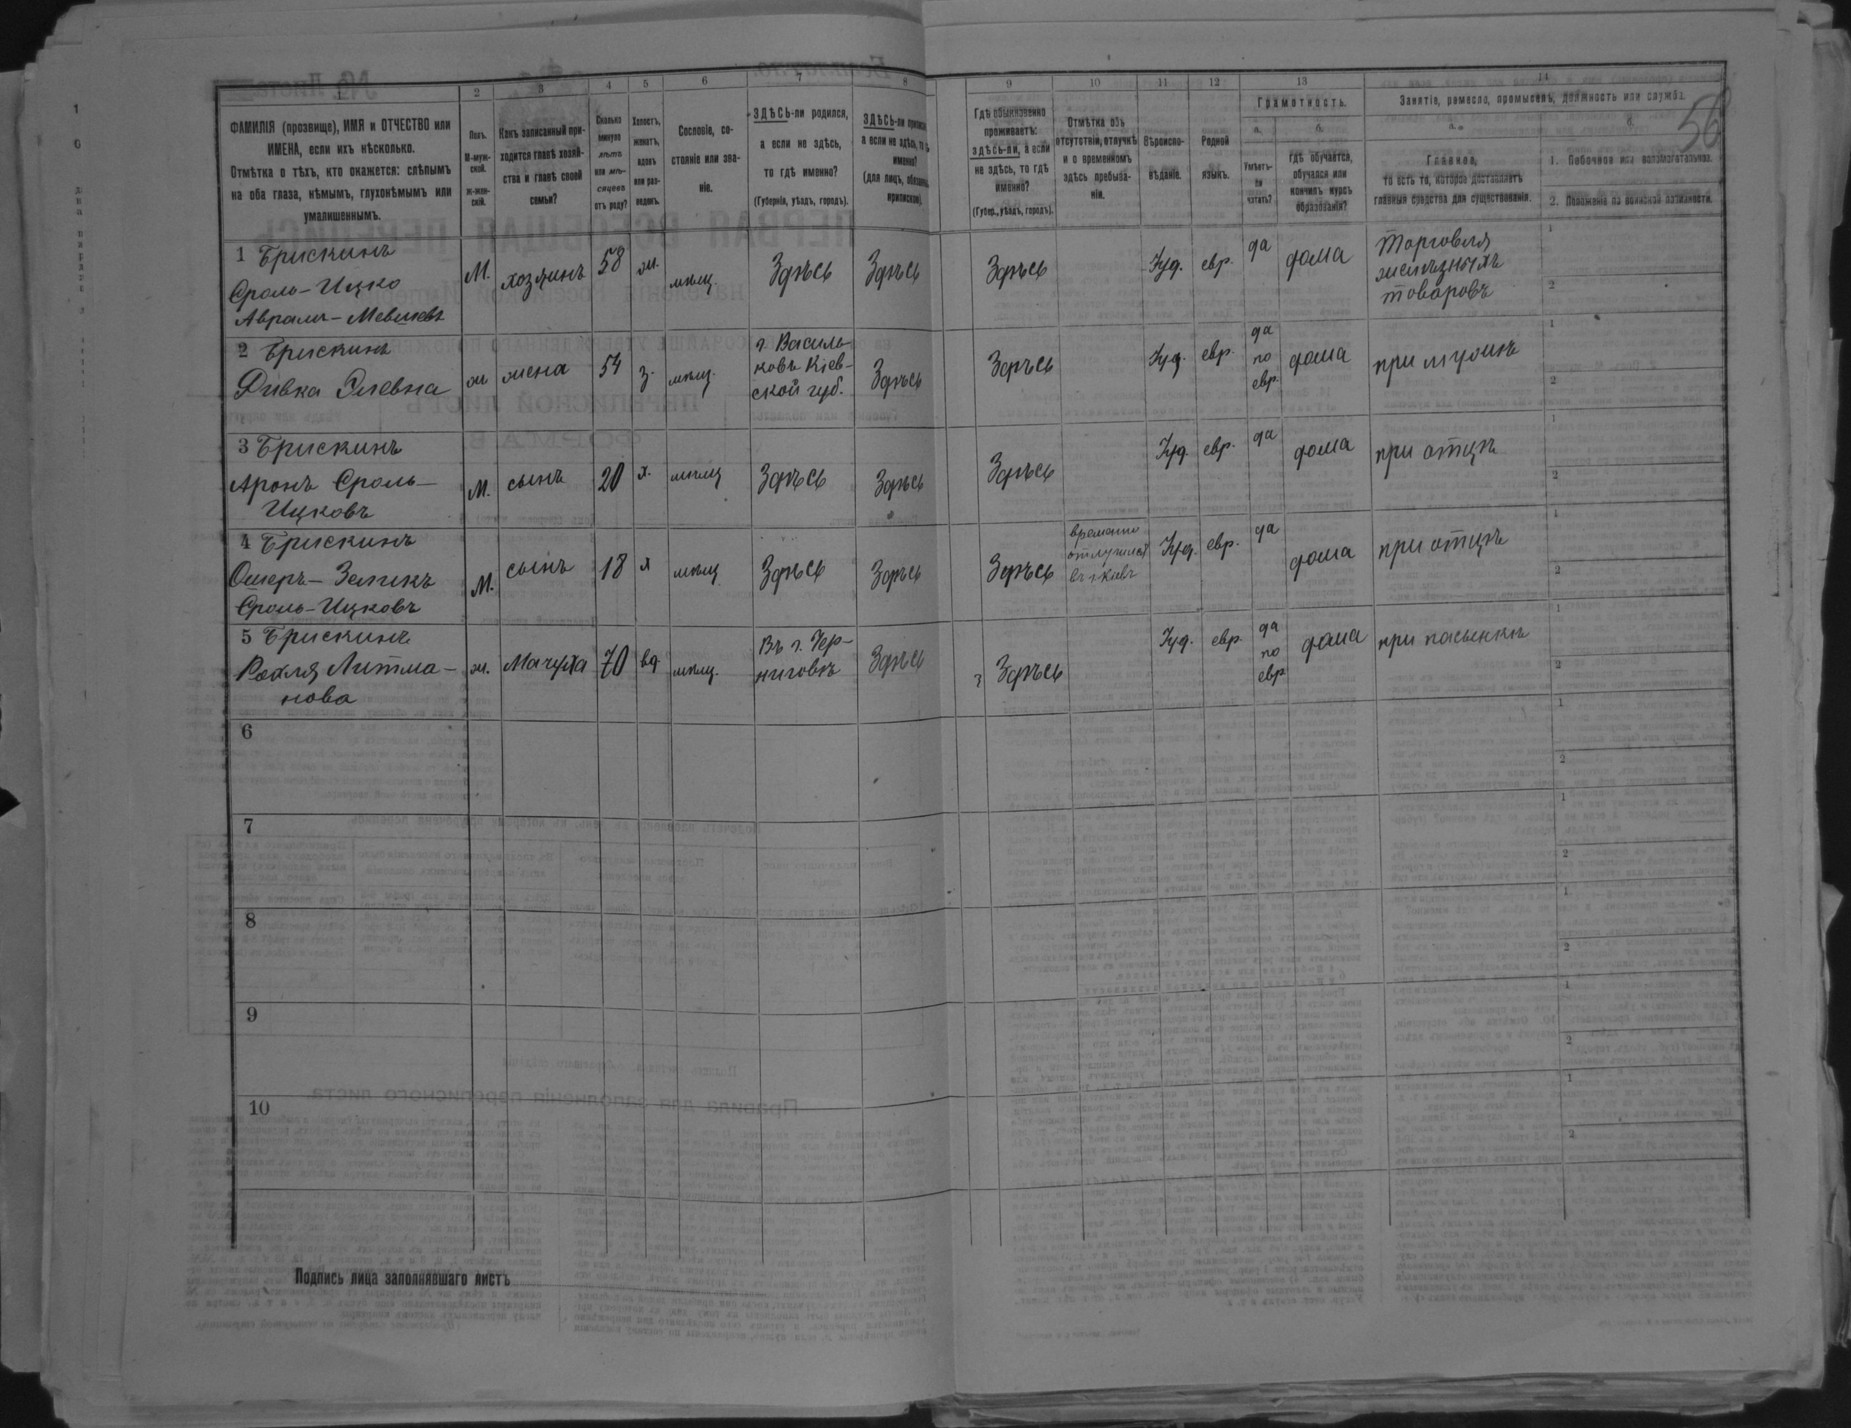 1 2 3 4 5 6 7 8 9 10 11 12 13 14
56
ФАМИЛІЯ (прозвище), ИМЯ и ОТЧЕСТВО или
ИМЕНА, если ихъ нѣсколько.
Отмѣтка о тѣхъ, кто окажется: слѣпымъ
на оба глаза, нѣмымъ, глухонѣмымъ или
умалишеннымъ.
Полъ.
М-муж-
ской.
Ж-жен-
скій.
Какъ записанный при-
ходится главѣ хозяй-
ства и главѣ своей
семьи?
Сколько
минуло
лѣтъ
или мѣ-
сяцевъ
отъ роду?
Холостъ,
женатъ,
вдовъ
или раз-
веденъ.
Сословіе, со-
стояніе или зва-
ніе.
ЗДѢСЬ-ли родился,
а если не здѣсь,
то гдѣ именно?
(Губернія, уѣздъ, городъ).
ЗДѢСЬ-ли
а если не здѣсь, то
именно?
(для лицъ,
Гдѣ обыкновенно
проживаетъ:
здѣсь-ли, а если
не здѣсь, то гдѣ
именно?
(Губер., уѣздъ, городъ).
Отмѣтка объ
отсутствіи, отлучкѣ
и о временномъ
здѣсь пребыва-
ніи.
Вѣроиспо-
вѣданіе.
Родной
языкъ.
Грамотность.
а. б.
Умѣетъ-
ли
читать?
гдѣ обучается,
обучался или
кончилъ курсъ
образованія?
Занятіе, ремесло, промыселъ, должность или служба.
а. б.
Главное,
то есть то, которое доставляетъ
главныя средства для существованія.
1. Побочное или вспомогательное.
2. Положеніе по воинской повинности.
1 Брискинъ
Сроль-Ицко
Аврам-Мевшевъ
М. хозяинъ 58 ж. мѣщ Здѣсь Здѣсь Здѣсь Іуд. евр. да дома
Торговля
желѣзныхъ
товаровъ
2 Брискинъ
Ривка Элевна
ж жена 54 з. мѣщ.
г. Василь-
ковъ Кіев-
ской губ.
Здѣсь Здѣсь Іуд. евр.
да
по
евр.
дома при мужѣ
3 Брискинъ
Аронъ Сроль-
Ицковъ
М. сынъ 20 х. мѣщ Здѣсь Здѣсь Здѣсь Іуд. евр. да дома при отцѣ
4 Брискинъ
Ошеръ-Зеликъ
Сроль-Ицковъ
М. сынъ 18 х мѣщ Здѣсь Здѣсь Здѣсь
временно
отлучился
въ г. Кіевъ
Іуд. евр. да дома при отцѣ
5 Брискинъ
Рохля Литма-
нова
ж. Мачуха 70 вд мѣщ.
Въ г. Чер-
ниговѣ
Здѣсь Здѣсь Іуд. евр.
да
по
евр
дома при пасынкѣ
6
7
8
9
10
1
2
1
2
1
2
1
2
1
2
1
2
1
2
1
2
1
2
1
2
Подпись лица заполнявшаго листъ